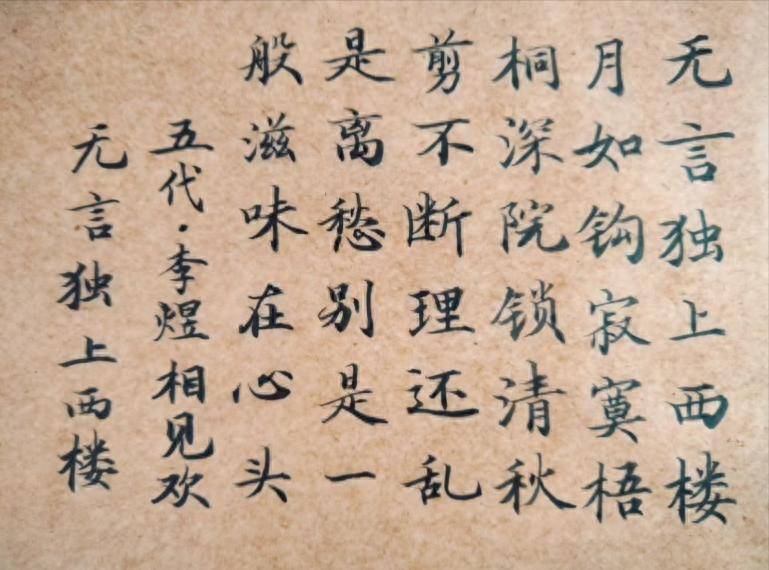 无言独上西楼
月如钩寂寞梧
桐深院锁清秋
剪不断理还乱
是离愁别是一
般滋味在心头
五代·李煜相见欢
无言独上西楼